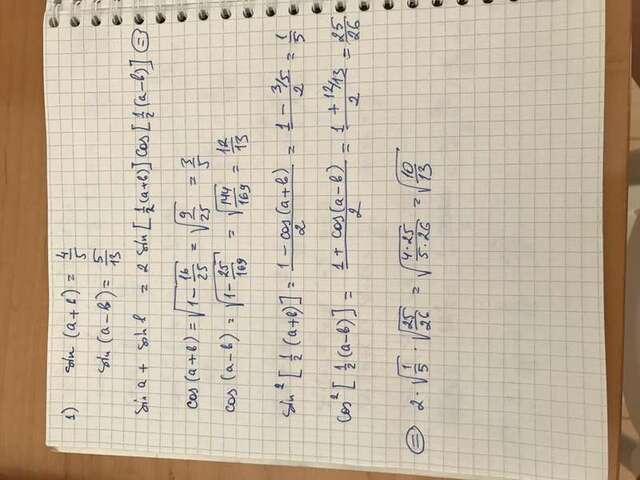 1) sin(a+b) = 4/5
sin(a-b) = 5/13
sin a + sin b = 2 sin[1/2(a+b)] cos[1/2(a-b)] ⊜
cos(a+b) = √(1 - 16/25) = √(9/25) = 3/5
cos(a-b) = √(1 - 25/169) = √(144/169) = 12/13
sin²[1/2(a+b)] = (1 - cos(a+b))/2 = (1 - 3/5)/2 = 1/5
cos²[1/2(a-b)] = (1 + cos(a-b))/2 = (1 + 12/13)/2 = 25/26
⊜ 2·√(1/5)·√(25/26) = √((4·25)/(5·26)) = √(10/13)